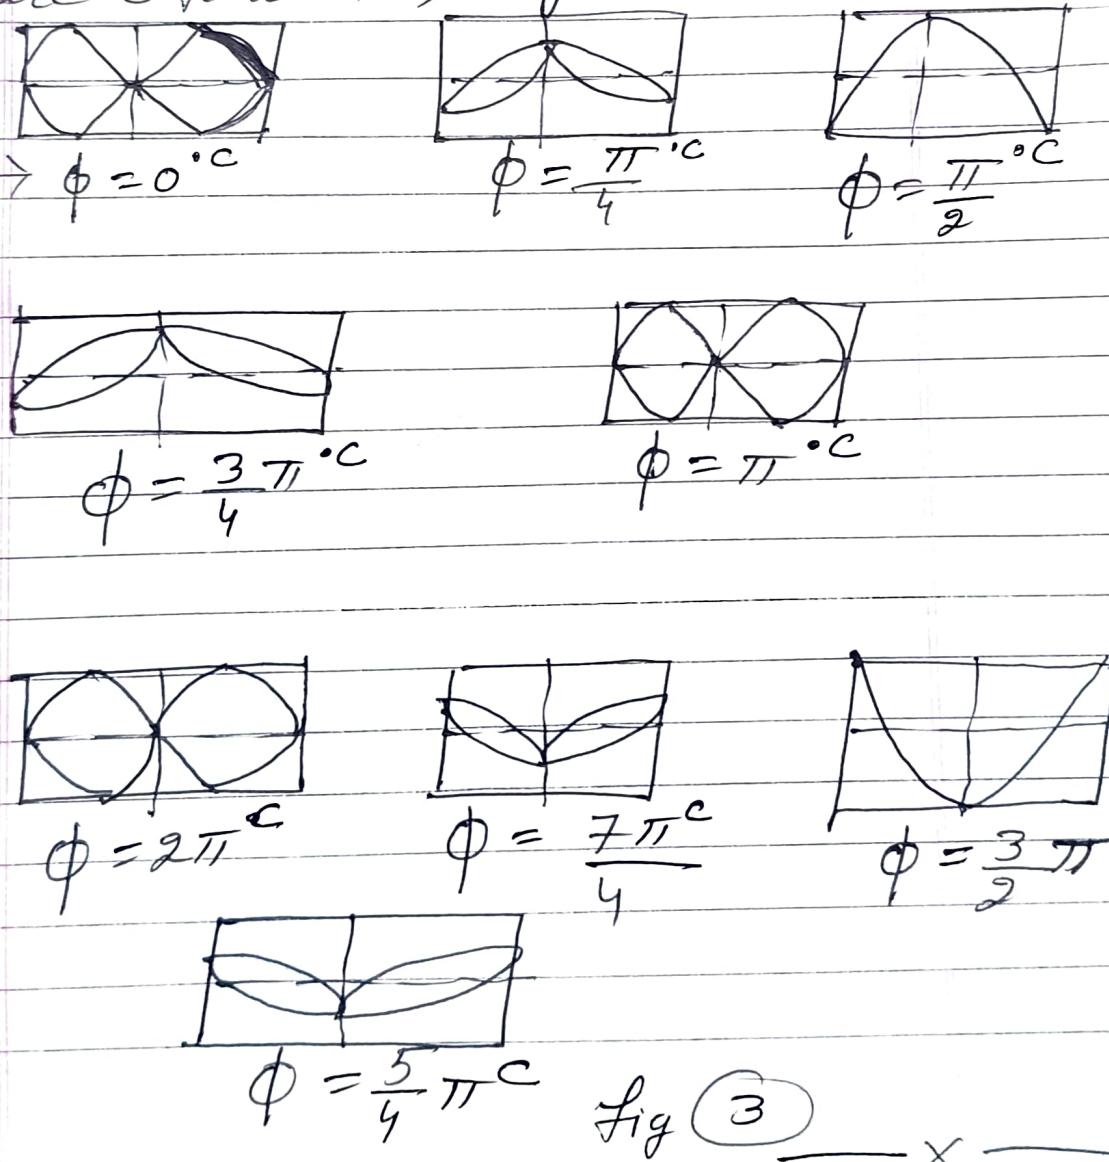 ϕ = 0°C ϕ = π/4 °C ϕ = π/2 °C
ϕ = 3/4 π °C ϕ = π °C
ϕ = 2π c ϕ = 7π c/4 ϕ = 3/2 π
ϕ = 5/4 π c
fig 3
x